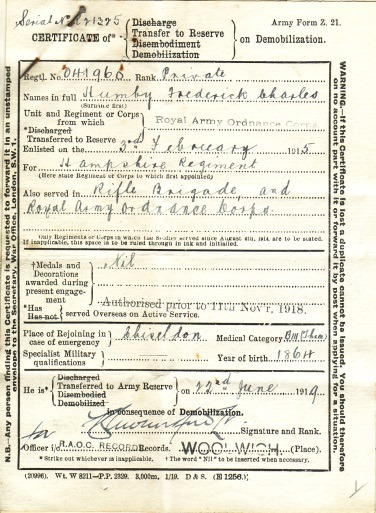 Serial No. 221325
Discharge
Transfer to Reserve
Disembodiment
Demobilization
CERTIFICATE of* on Demobilization.
Army Form Z. 21.
Regtl. No. 041960 Rank Private
Names in full Humby Frederick Charles
(Surname first)
Unit and Regiment or Corps
from which
Royal Army Ordnance Corps
*Discharged
Transferred to Reserve
Enlisted on the 3rd February 1915
For Hampshire Regiment
(Here state Regiment or Corps to which first appointed)
Also served in Rifle Brigade, and
Royal Army Ordnance Corps.
Only Regiments or Corps in which the Soldier served since August 4th, 1914, are to be stated.
If inapplicable, this space is to be ruled through in ink and initialled.
†Medals and
Decorations
awarded during
present engage-
ment
Nil
Authorised prior to 11th Nov'r, 1918.
*Has
Has not served Overseas on Active Service.
Place of Rejoining in
case of emergency
Chiseldon
Medical Category
Specialist Military
qualifications
Year of birth 1864
He is*
Discharged
Transferred to Army Reserve
Disembodied
Demobilized
on 22nd June 1919
in consequence of Demobilization.
Signature and Rank.
Officer i/c R.A.O.C. RECORDS Records. WOOLWICH (Place).
* Strike out whichever is inapplicable. † The word "Nil" to be inserted when necessary.
(20996). Wt. W 8211—P.P. 2329. 3,000m. 1/19. D & S. (E 1256.)
N.B.—Any person finding this Certificate is requested to forward it in an unstamped
envelope to the Secretary, War Office, London, S.W. 1.
WARNING.—If this Certificate is lost a duplicate cannot be issued. You should therefore
on no account part with it or forward it by post when applying for a situation.